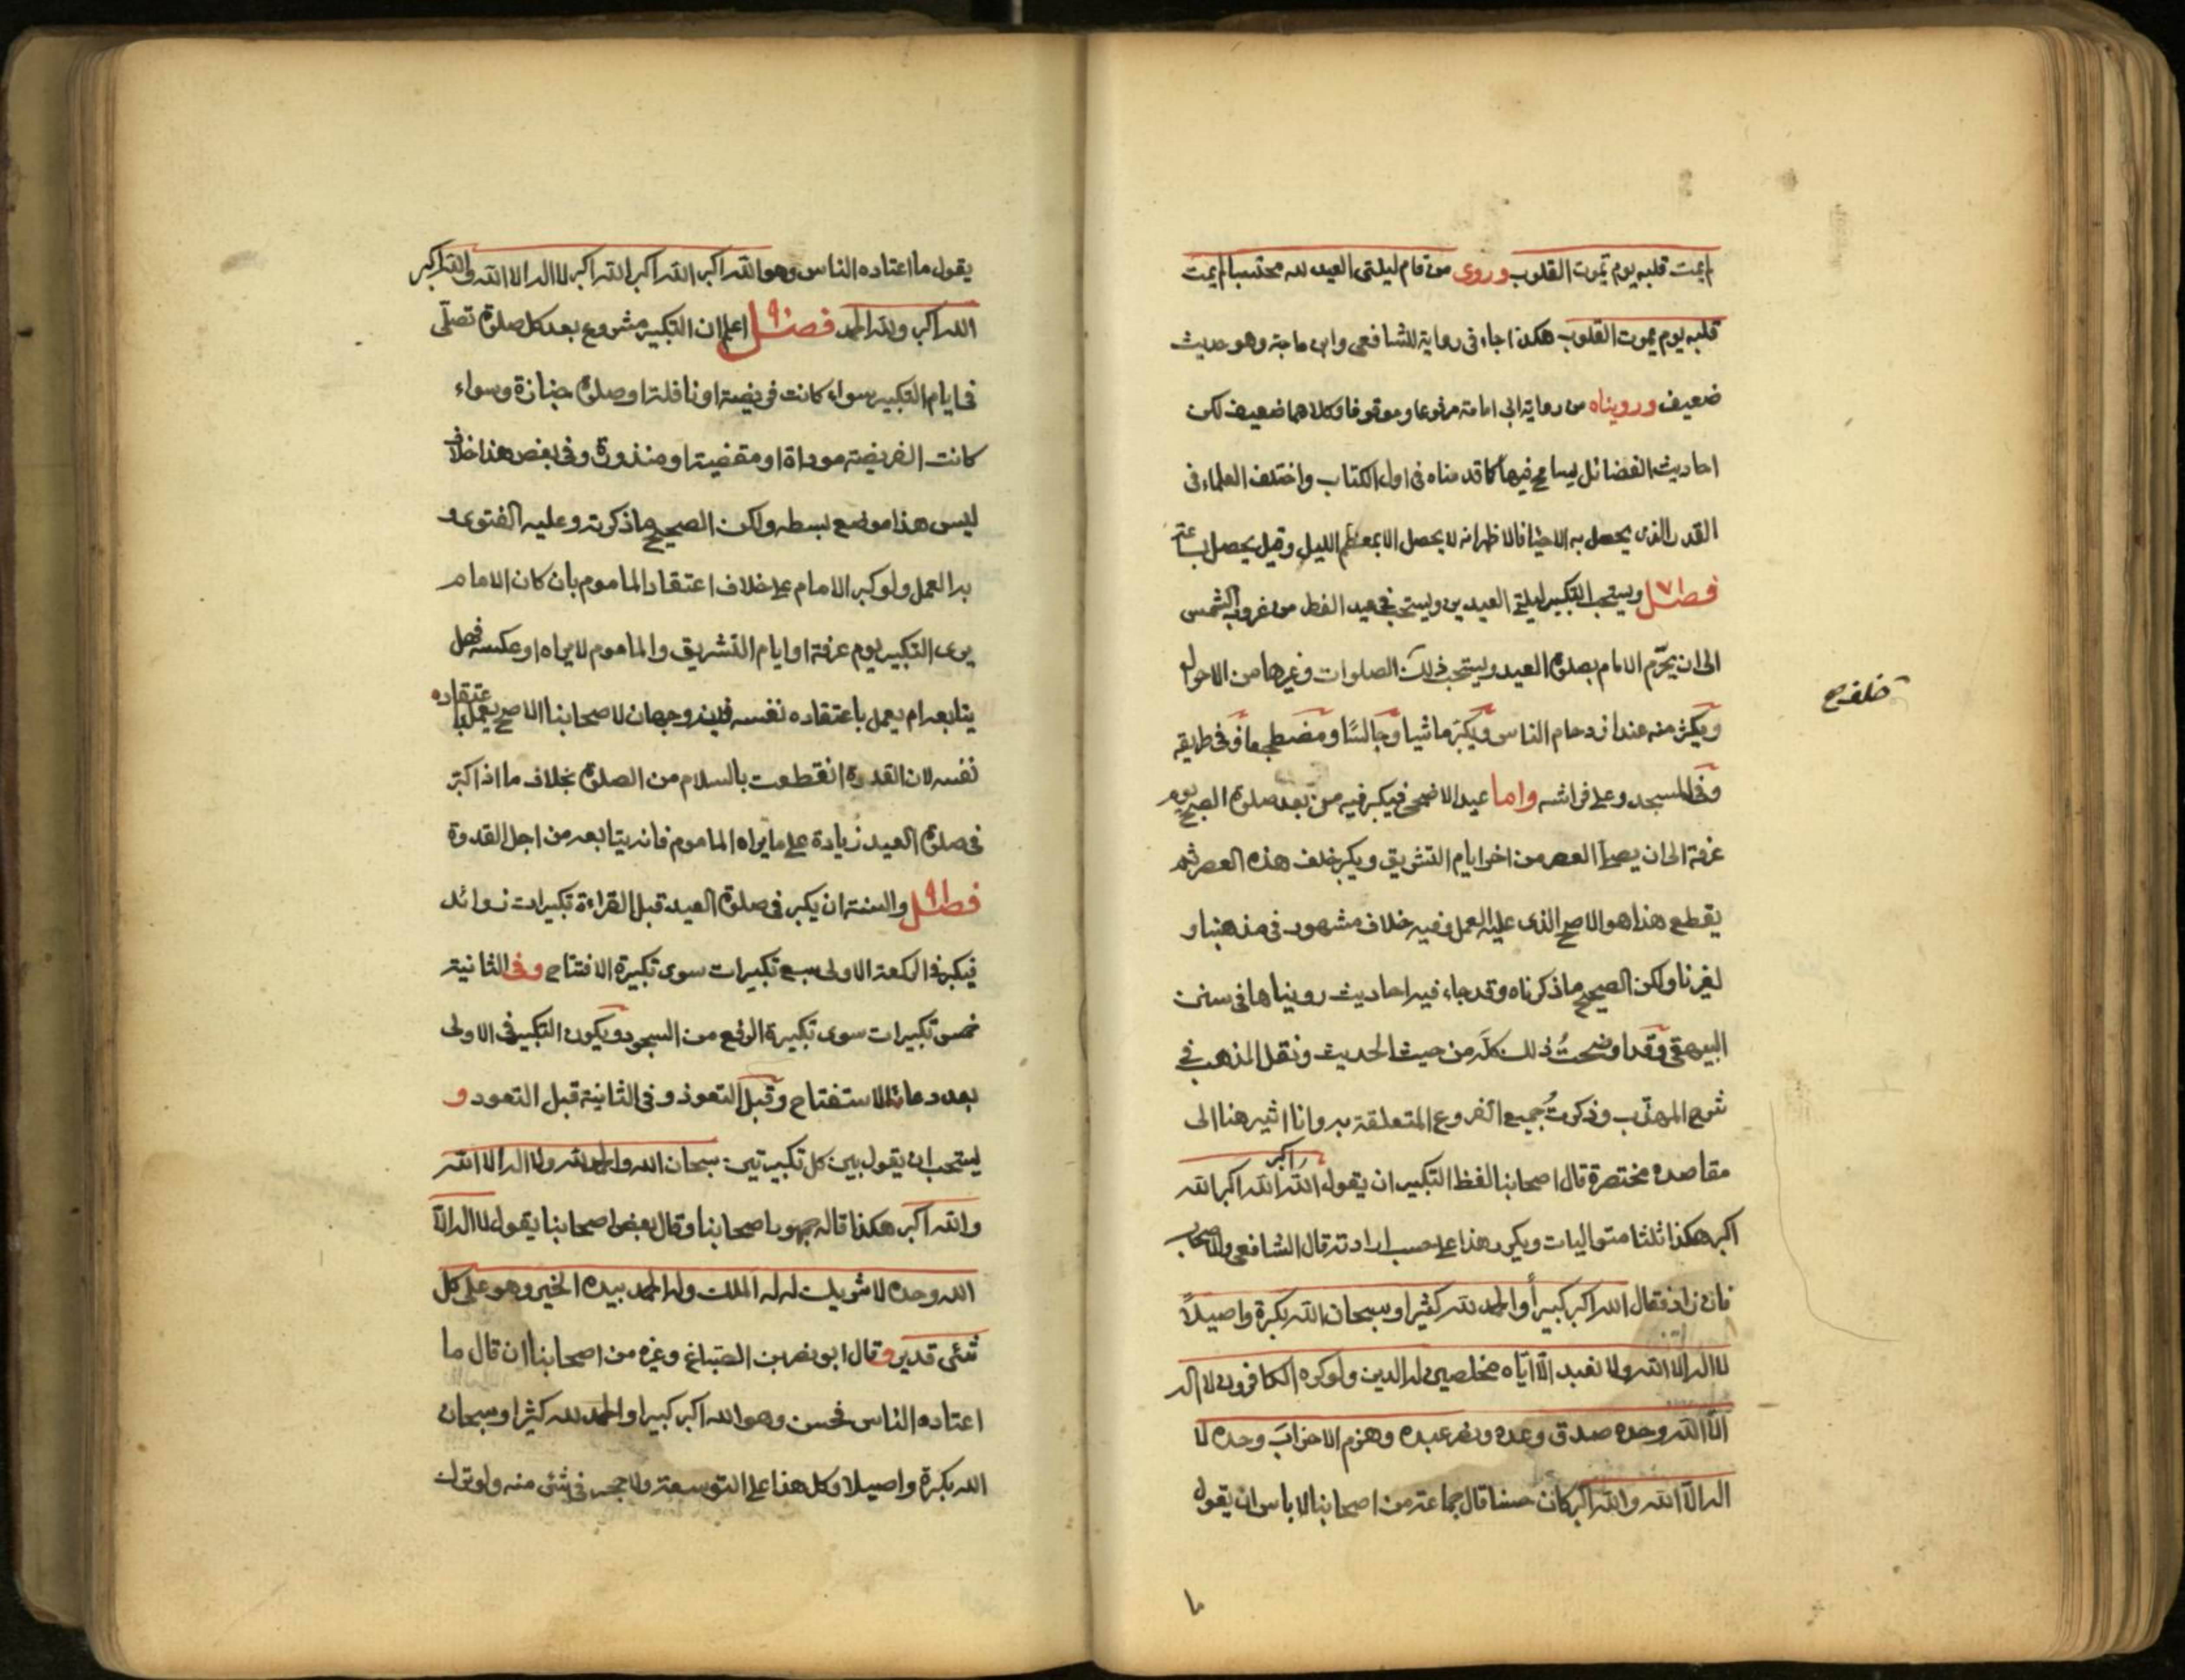 لم يمت قلبه يوم تموت القلوب وروى من قام ليلتى العيد لله محتسبا لم يمت
قلبه يوم يموت القلوب هكذا جاء فى رواية للشافعى وابن ماجة وهو حديث
ضعيف ورويناه من رواية ابى امامة مرفوعا وموقوفا وكلاهما ضعيف لكن
احاديث الفضائل يسامح فيها كما قدمناه فى اول الكتاب واختلف العلماء فى
القدر الذى يحصل به الاحيا فالاظهر انه لا يحصل الا بمعظم الليل وقيل يحصل بساعة
فصل ويستحب التكبير ليلتى العيدين ويستحب فى عيد الفطر من غروب الشمس
الى ان يحرم الامام بصلوة العيد ويستحب ذلك الصلوات وغيرها من الاحوال
خلف صح
ويكثر منه عند ازدحام الناس ويكبر ماشيا وجالسًا ومضطجعا وفى طريقه
وفى المسجد وعلى فراشه واما عيد الاضحى فيكبر فيه من بعد صلوة الصبح يوم
عرفة الى ان يصلى العصر من اخر ايام التشريق ويكبر خلف هذه العصر ثم
يقطع هذا هو الاصح الذى عليه العمل وفيه خلاف مشهور فى مذهبنا و
لغيرنا ولكن الصحيح ما ذكرناه وقد جاء فيه احاديث رويناها فى سنن
البيهقى وقد اوضحتُ ذلك كلَّه من حيث الحديث ونقل المذهب فى
شرح المهذّب وذكرتُ جميع الفروع المتعلقة به وانا اشير هنا الى
مقاصده مختصرة قال اصحابنا لفظ التكبير ان يقول الله اكبر الله اكبر الله
اكبر هكذا ثلثا متواليات ويكرر هذا على حسب ارادته قال الشافعى والاصحاب
فان زاد فقال الله اكبر كبيرأ والحمد لله كثيرا وسبحان الله بكرة واصيلاً
لا اله الا الله ولا نعبد الّا ايّاه مخلصين له الدين ولو كره الكافرون لا اله
الّا الله وحده صدق وعده ونصر عبده وهزم الاحزابَ وحده لا
اله الّا الله والله اكبر كان حسنا قال جماعة من اصحابنا لا باس ان يقول
يقول ما اعتاده الناس وهو الله اكبر الله اكبر الله اكبر لا اله الا الله والله اكبر
الله اكبر ولله الحمد فصل اعلم ان التكبير مشروع بعد كل صلوة تصلّى
فى ايام التكبير سواء كانت فريضة او نافلة او صلوة جنازة وسواء
كانت الفريضة موداة او مقضية او منذورة وفى بعض هذا خلاف
ليس هذا موضع بسطه ولكن الصحيح ما ذكرته وعليه الفتوى و
به العمل ولو كبر الامام على خلاف اعتقاد الماموم بان كان الامام
يرى التكبير يوم عرفة او ايام التشريق والماموم لا يراه او عكسه فهل
يتابعه ام يعمل باعتقاده نفسه فيه وجهان لاصحابنا الاصح يعمل باعتقاده
نفسه لان القدوة انقطعت بالسلام من الصلوة بخلاف ما اذا كبّر
فى صلوة العيد زيادة على ما يراه الماموم فانه يتابعه من اجل القدوة
فصل والسنة ان يكبر فى صلوة العيد قبل القراءة تكبيرات زوائد
فيكبر فى الركعة الاولى سبع تكبيرات سوى تكبيرة الافتتاح وفى الثانية
خمس تكبيرات سوى تكبيرة الرفع من السجود ويكون التكبير فى الاولى
بعد دعاء الاستفتاح وقبل التعوذ وفى الثانية قبل التعود و
يستحب ان يقول بين كل تكبيرتين سبحان الله والحمد لله ولا اله الا الله
والله اكبر هكذا قاله جمهور اصحابنا وقال بعض اصحابنا يقول لا اله الّا
الله وحده لا شريك له له الملك وله الحمد بيده الخير وهو على كل
شئى قدير وقال ابو نصر بن الصّباغ وغيره من اصحابنا ان قال ما
اعتاده الناس فحسن وهو الله اكبر كبيرا والحمد لله كثيرا وسبحان
الله بكرة واصيلا وكل هذا على التوسعة ولا حجر فى شئى منه ولو ترك